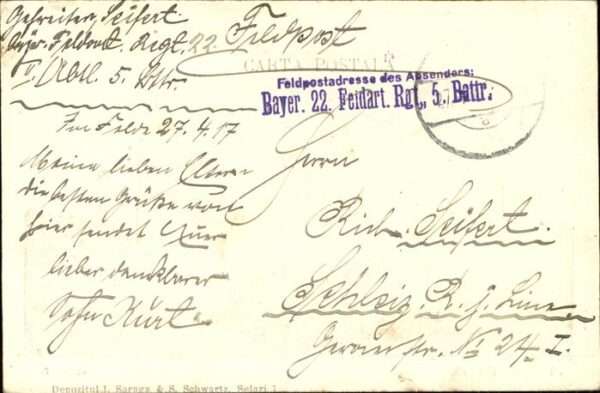 Gefreiter Seifert
Bayer. Feldart. Regt. 22.
II. Abtl. 5. Bttr.
Feldpost
CARTA POSTALA
Feldpostadresse des Absenders:
Bayer. 22. Feldart. Rgt., 5. Battr.
Im Felde 27.4.17
Meine lieben Eltern
die besten Grüße von
hier sendet Euer
lieber dankbarer
Sohn Kurt
Herrn
Rich. Seifert.
Schleiz R. j. Linie
No 24 I.
Depozitul I. Saraga & S. Schwartz,